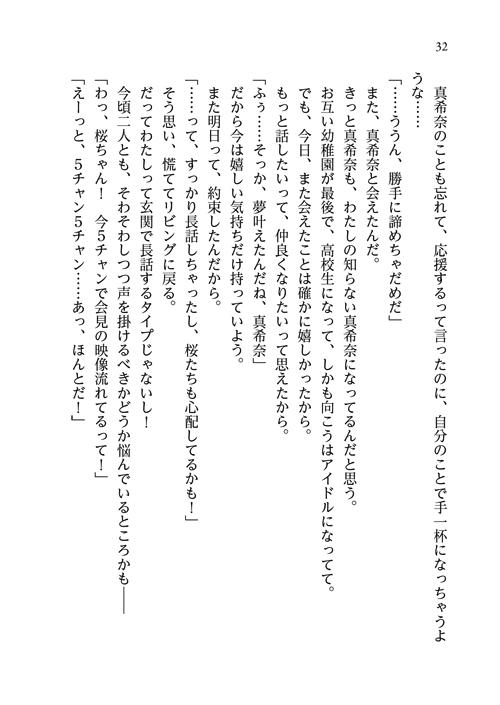 32
真希奈のことも忘れて、応援するって言ったのに、自分のことで手一杯になっちゃうよ
うな……
「……ううん、勝手に諦めちゃだめだ」
また、真希奈と会えたんだ。
きっと真希奈も、わたしの知らない真希奈になってるんだと思う。
お互い幼稚園が最後で、高校生になって、しかも向こうはアイドルになってて。
でも、今日、また会えたことは確かに嬉しかったから。
もっと話したいって、仲良くなりたいって思えたから。
「ふぅ……そっか、夢叶えたんだね、真希奈」
だから今は嬉しい気持ちだけ持っていよう。
また明日って、約束したんだから。
「……って、すっかり長話しちゃったし、桜たちも心配してるかも！」
そう思い、慌ててリビングに戻る。
だってわたしって玄関で長話するタイプじゃないし！
今頃二人とも、そわそわしつつ声を掛けるべきかどうか悩んでいるところかも――
「わっ、桜ちゃん！　今５チャンで会見の映像流れてるって！」
「えーっと、５チャン５チャン……あっ、ほんとだ！」